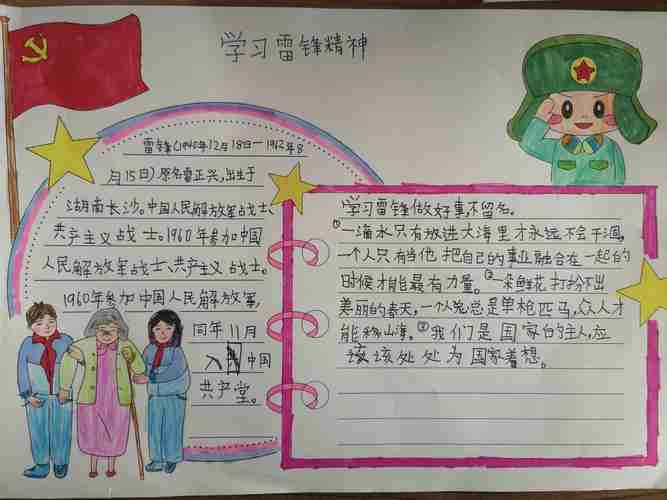 学习雷锋精神
雷锋(1940年12月18日—1962年8
月15日)原名雷正兴,出生于
湖南长沙。中国人民解放军战士、
共产主义战士。1960年参加中国
人民解放军战士、共产主义战士。
1960年参加中国人民解放军,
同年11月
入 中国
共产堂。
学习雷锋做好事,不留名。
①一滴水只有放进大海里才永远不会干涸,
一个人只有当他把自己的事业融合在一起的
时候才能最有力量。②一朵鲜花打扮不出
美丽的春天,一个人先总是单枪匹马,众人才
能移山海。③我们是国家的主人,应
该该处处为国家着想。